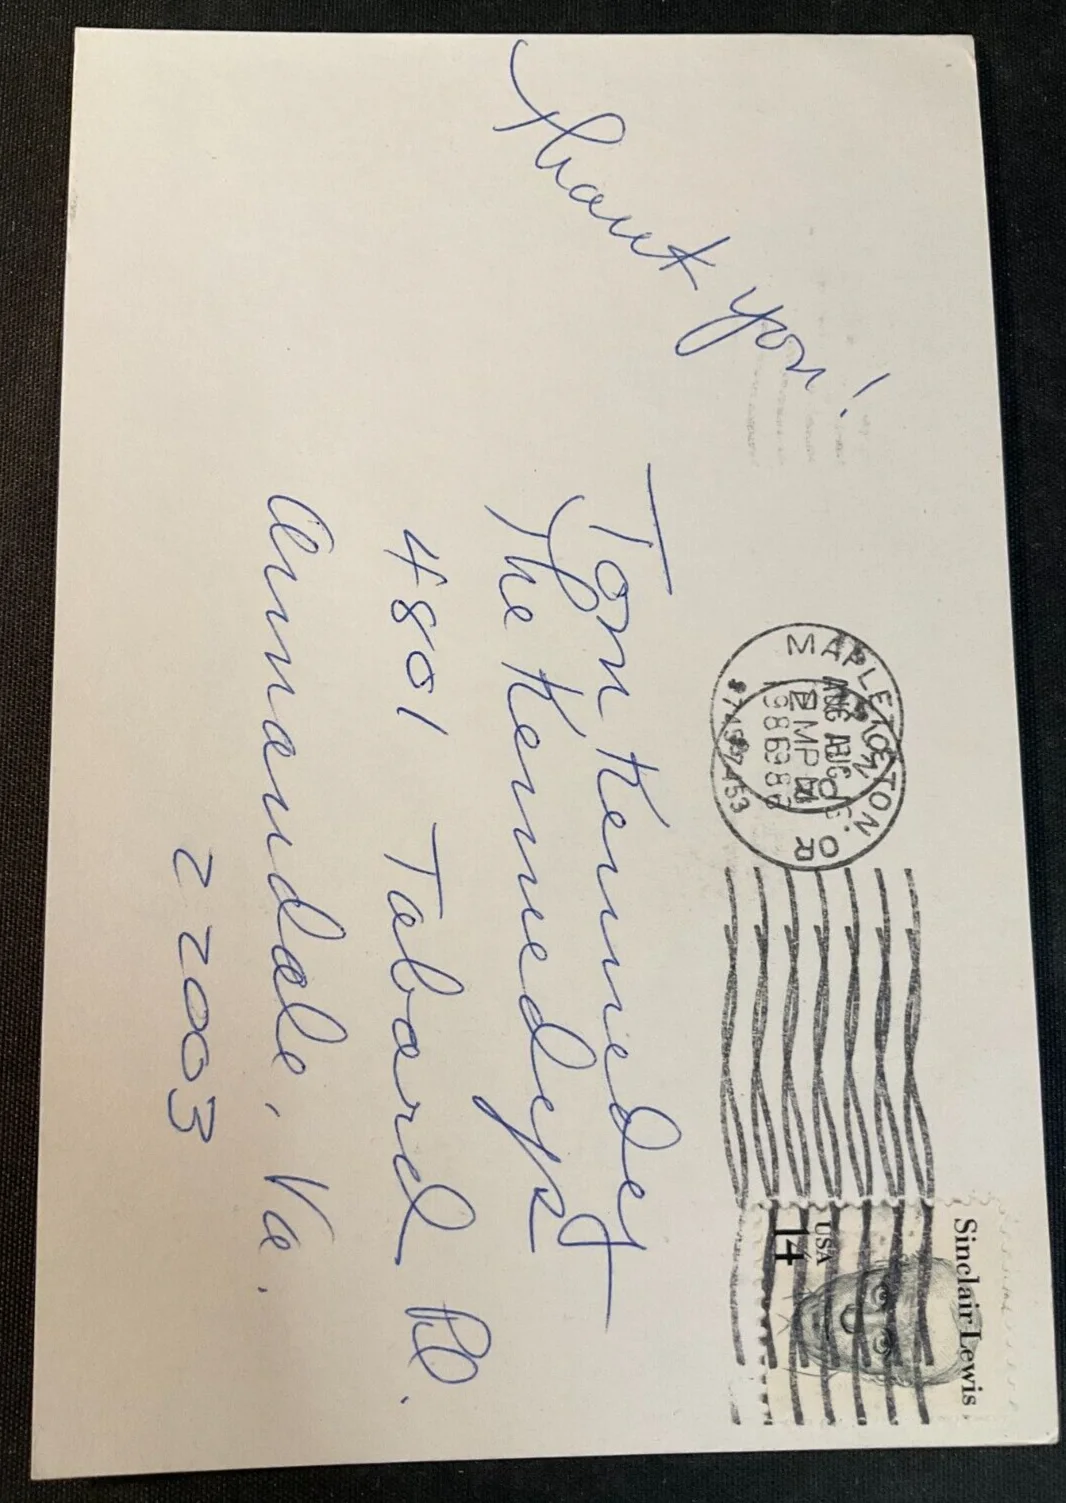 Thank you!
MAPLETON, OR
AUG
PM
1986
97453
Sinclair Lewis
USA
14
Tom Kennedy
The Kennedys
4801 Tabard Rd.
Annandale, Va.
22003